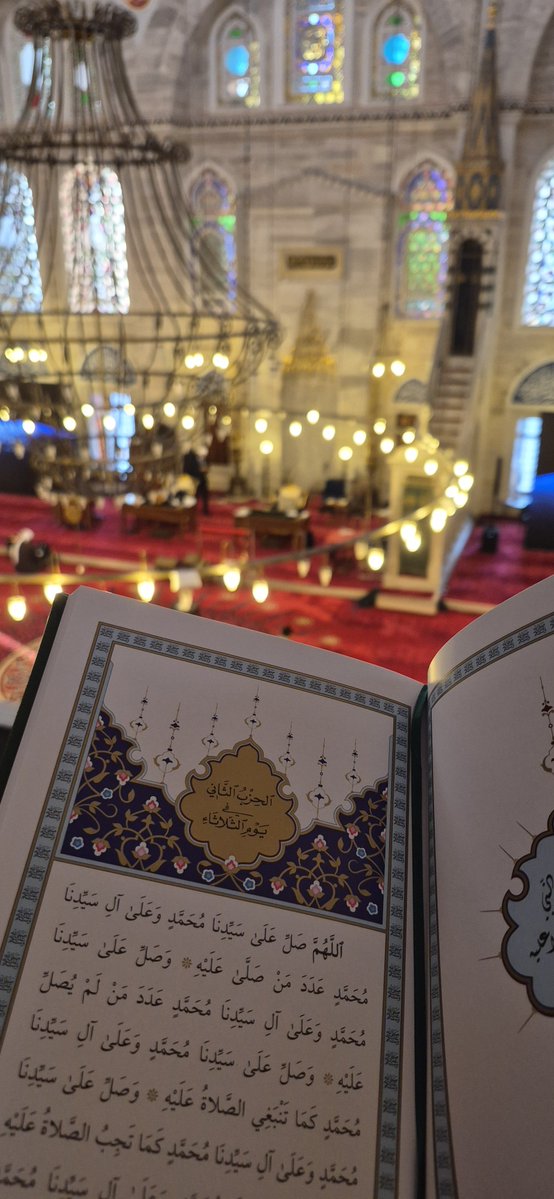 الحِزْبُ الثَّانِي
فِي
يَوْمِ الثُّلَاثَاءِ
اَللَّهُمَّ صَلِّ عَلَىٰ سَيِّدِنَا مُحَمَّدٍ وَعَلَىٰ آلِ سَيِّدِنَا
مُحَمَّدٍ عَدَدَ مَنْ صَلَّىٰ عَلَيْهِ * وَصَلِّ عَلَىٰ سَيِّدِنَا
مُحَمَّدٍ وَعَلَىٰ آلِ سَيِّدِنَا مُحَمَّدٍ عَدَدَ مَنْ لَمْ يُصَلِّ
عَلَيْهِ * وَصَلِّ عَلَىٰ سَيِّدِنَا مُحَمَّدٍ وَعَلَىٰ آلِ سَيِّدِنَا
مُحَمَّدٍ كَمَا تَنْبَغِي الصَّلَاةُ عَلَيْهِ * وَصَلِّ عَلَىٰ سَيِّدِنَا
مُحَمَّدٍ وَعَلَىٰ آلِ سَيِّدِنَا مُحَمَّدٍ كَمَا تَجِبُ الصَّلَاةُ عَلَيْهِ